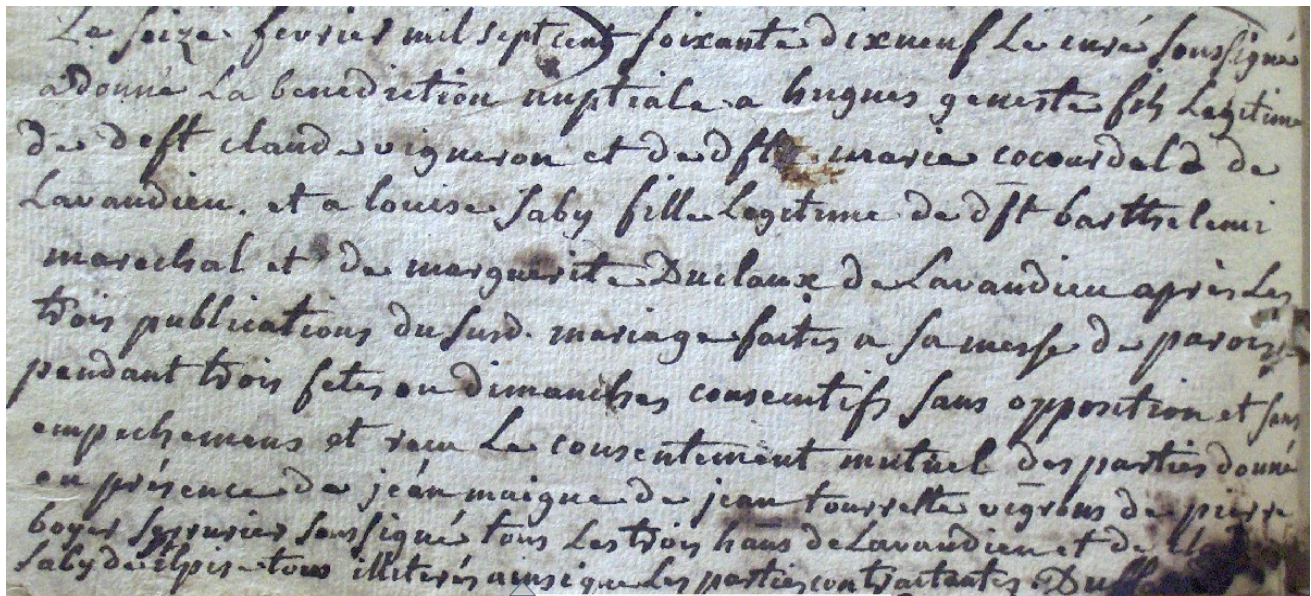 Le seize fevrier mil sept cent soixante dixneuf Le curé soussigné
a donné La benediction nuptiale a hugues geneste fils Legitime
de deft claude vigneron et de dfte marie cocourdela de
Lavaudieu. et a louise saby fille Legitime de dft barthelemi
marechal et de marguerite Duclaux de Lavaudieu après Les
trois publications du susd. mariage faites a sa messe de paroisse
pendant trois fetes ou dimanches consecutifs sans opposition et sans
empechemens et recu Le consentement mutuel des parties donné
en présence de jean maigne de jean tourrette vigrons de pierre
boyer serrurier soussigné tous Les trois hans de Lavaudieu et de
saby de tous illiterés ainsi que Les parties contractantes.